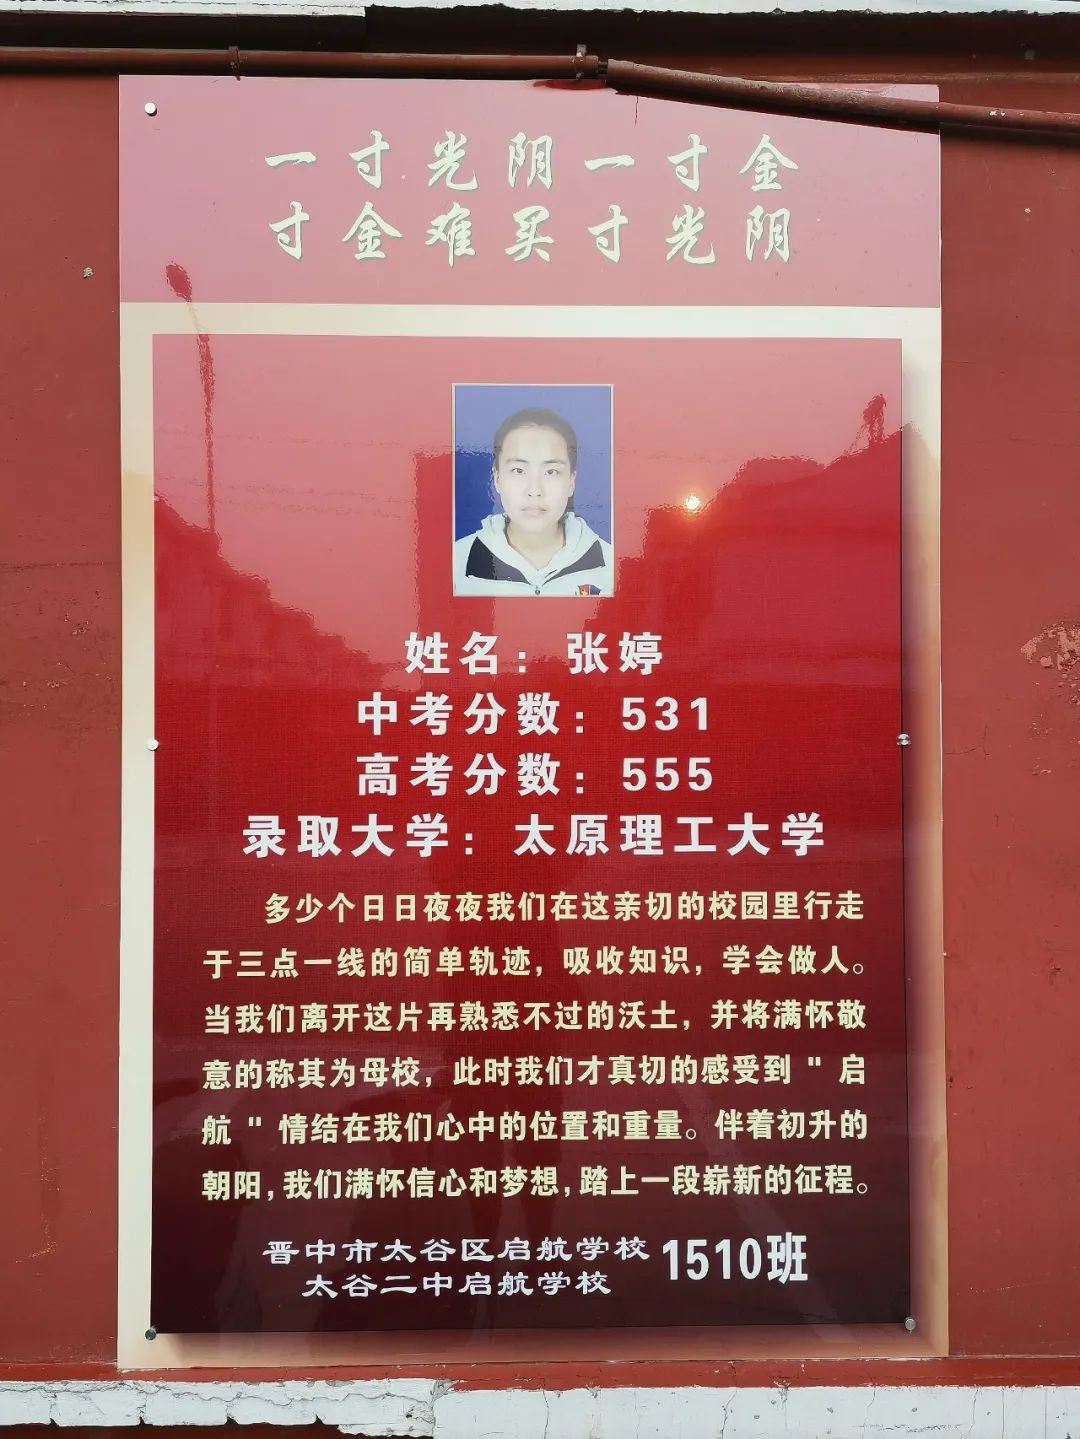 一寸光阴一寸金
寸金难买寸光阴
姓名：张婷
中考分数：531
高考分数：555
录取大学：太原理工大学
多少个日日夜夜我们在这亲切的校园里行走
于三点一线的简单轨迹，吸收知识，学会做人。
当我们离开这片再熟悉不过的沃土，并将满怀敬
意的称其为母校，此时我们才真切的感受到"启
航"情结在我们心中的位置和重量。伴着初升的
朝阳，我们满怀信心和梦想，踏上一段崭新的征程。
晋中市太谷区启航学校
太谷二中启航学校
1510班